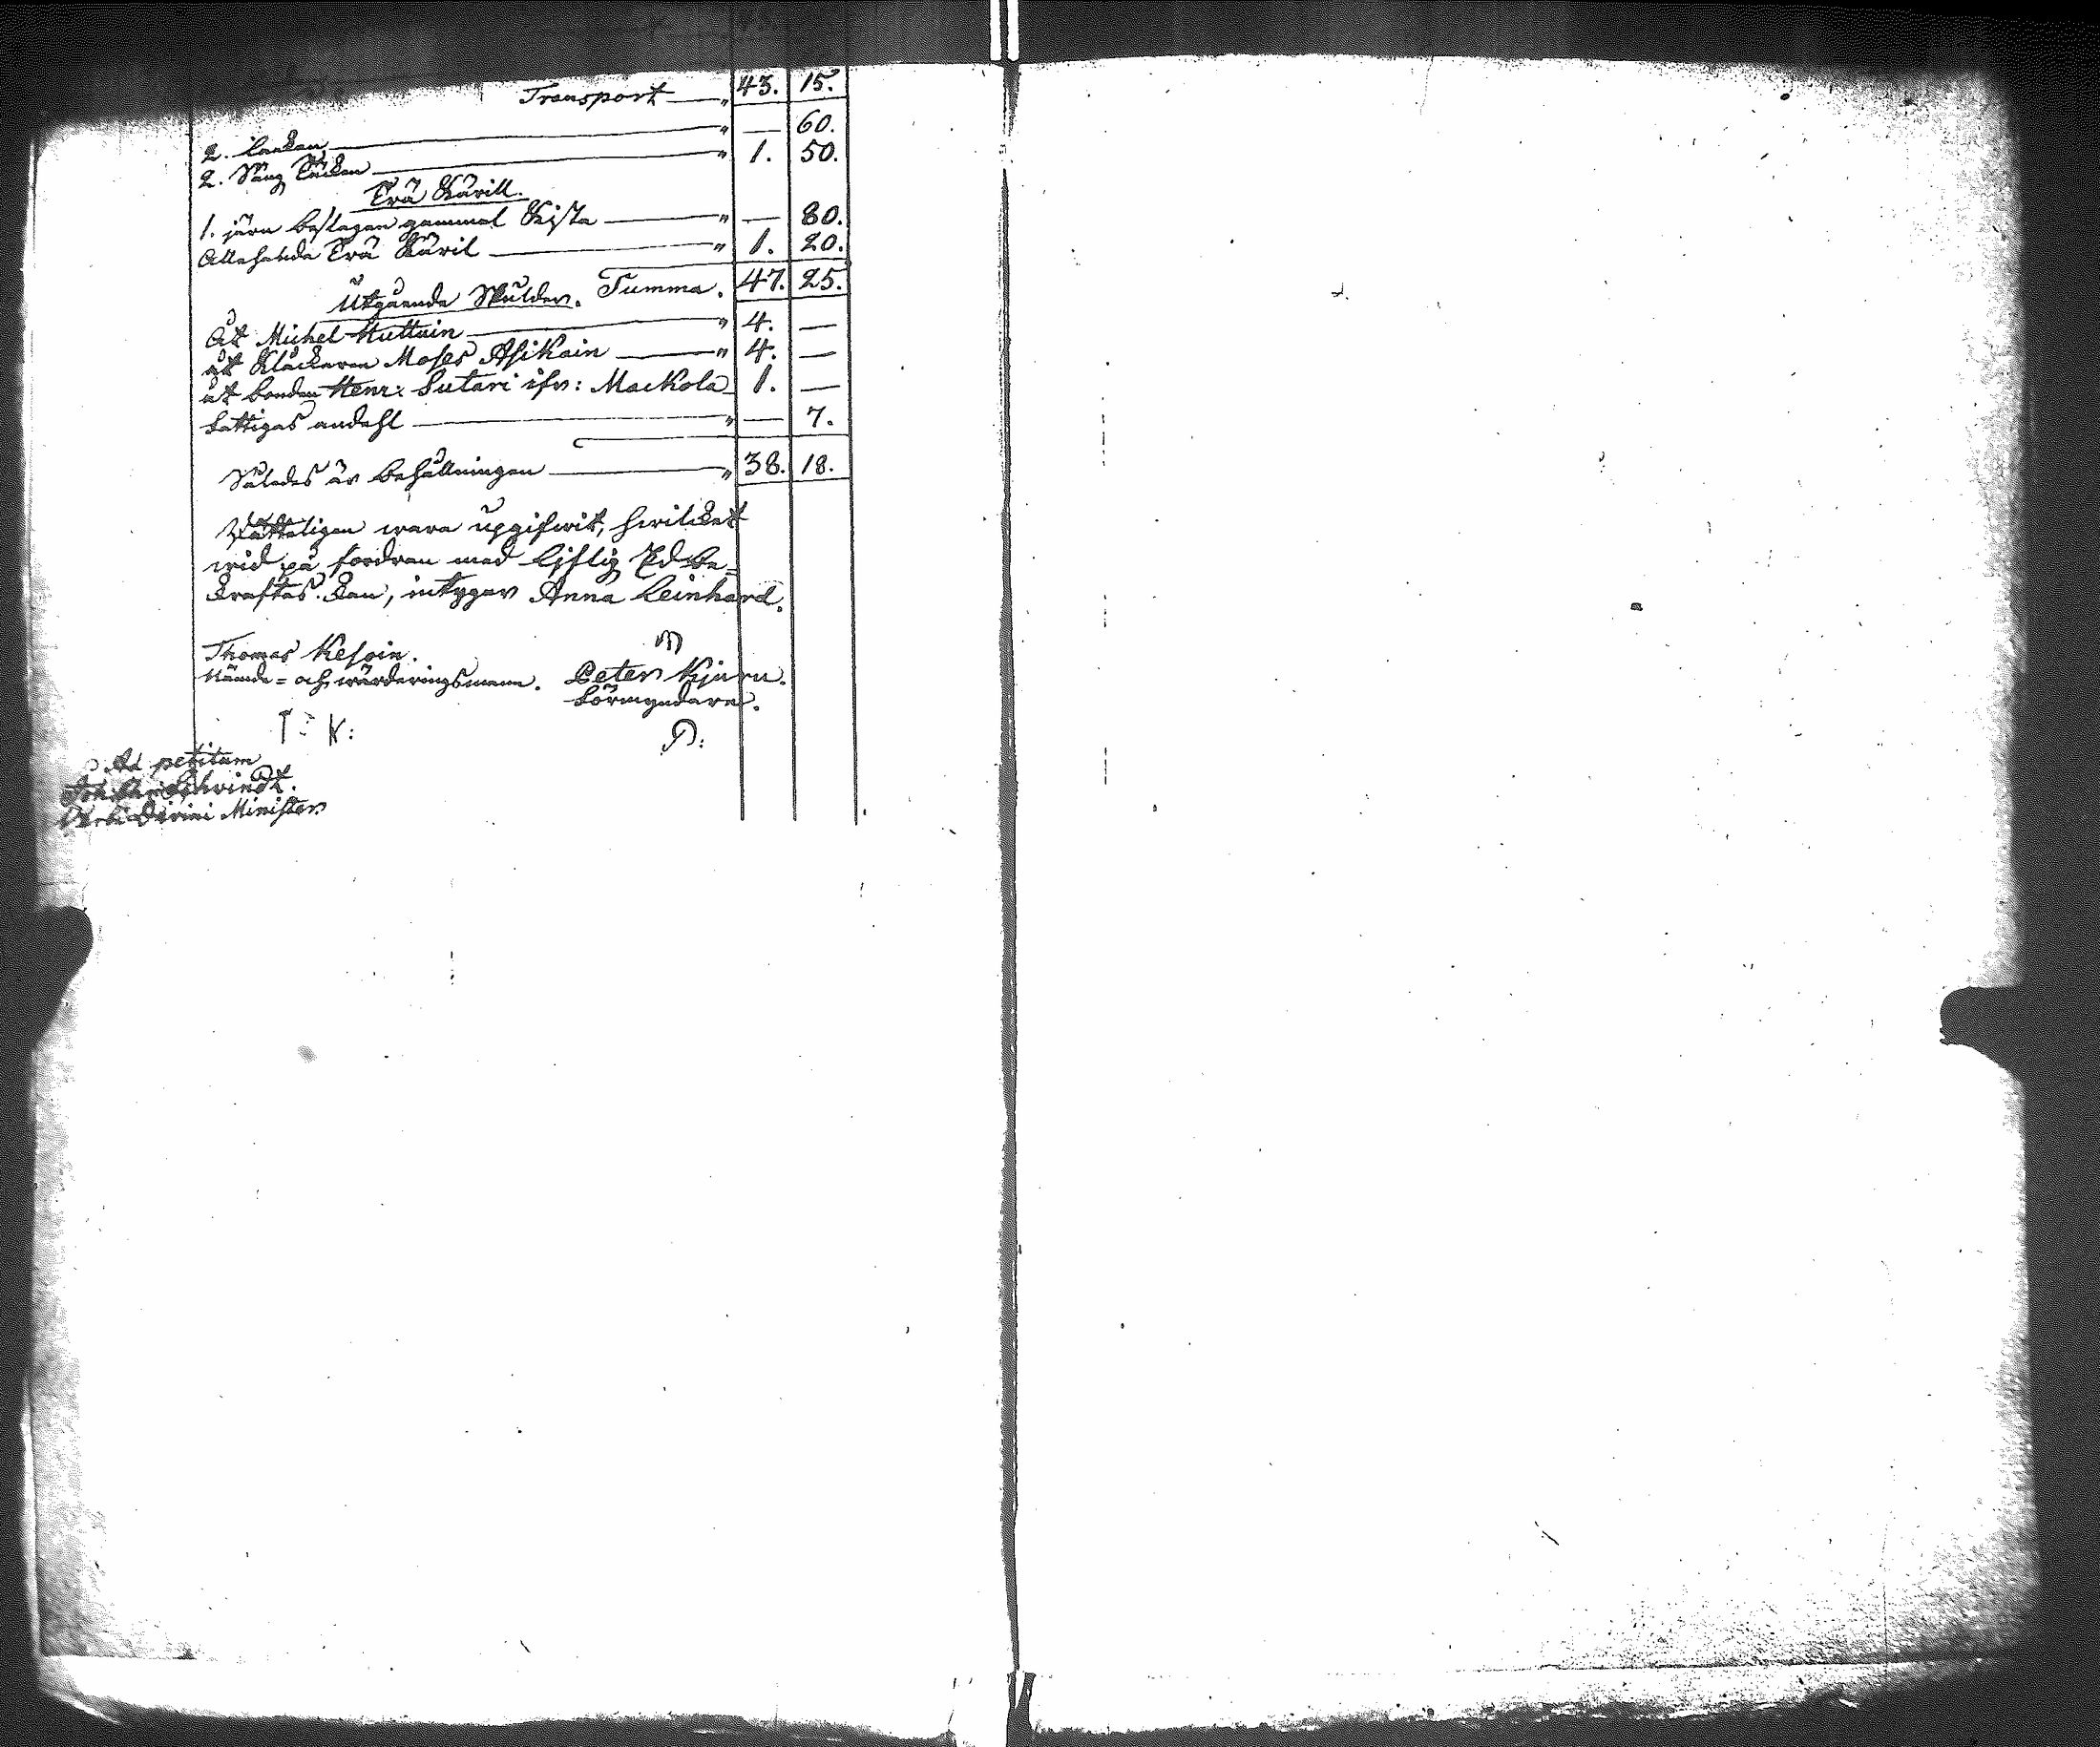 Transport — " 43. 15.
2. Lakan — " — 60.
2. Säng Täcken — " 1. 50.
Trä Kärill.
1. järn beslagen gammal Kista — " — 80.
Allehanda Trä Käril — " 1. 20.
Summa. 47. 25.
Utgående Skulder.
Åt Michel Muttain — " 4. —
åt Klåckaren Moses Asikain — " 4. —
åt bonden Henr: Sutari ifr: Mackola 1. —
Fattigas andehl — " — 7.
Således är behållningen — " 38. 18.
Rätteligen wara upgifwit, hwilcket
wid på fordran med lijflig Ed be=
kraftas kan, intygar Anna Leinhard.
Thomas Kesoin.
Nämde= och wärderingsman. Peter Kjuru.
Förmyndare.
T: K: P:
Ad petitum
Schvindt.
Verbi Divini Minister